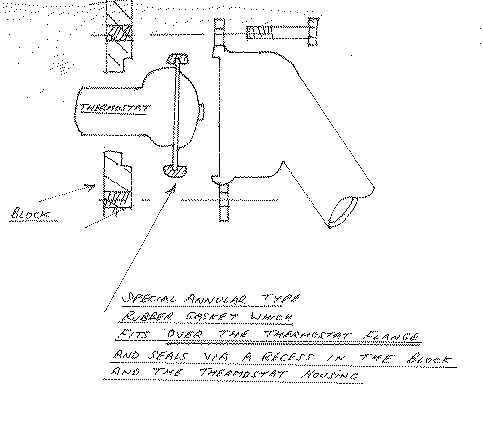 THERMOSTAT
BLOCK
SPECIAL ANNULAR TYPE
RUBBER GASKET WHICH
FITS OVER THE THERMOSTAT FLANGE
AND SEALS VIA A RECESS IN THE BLOCK
AND THE THERMOSTAT HOUSING